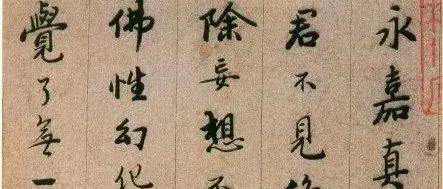 永嘉真
君不見
除妄想不
佛性幻化
覺了無一